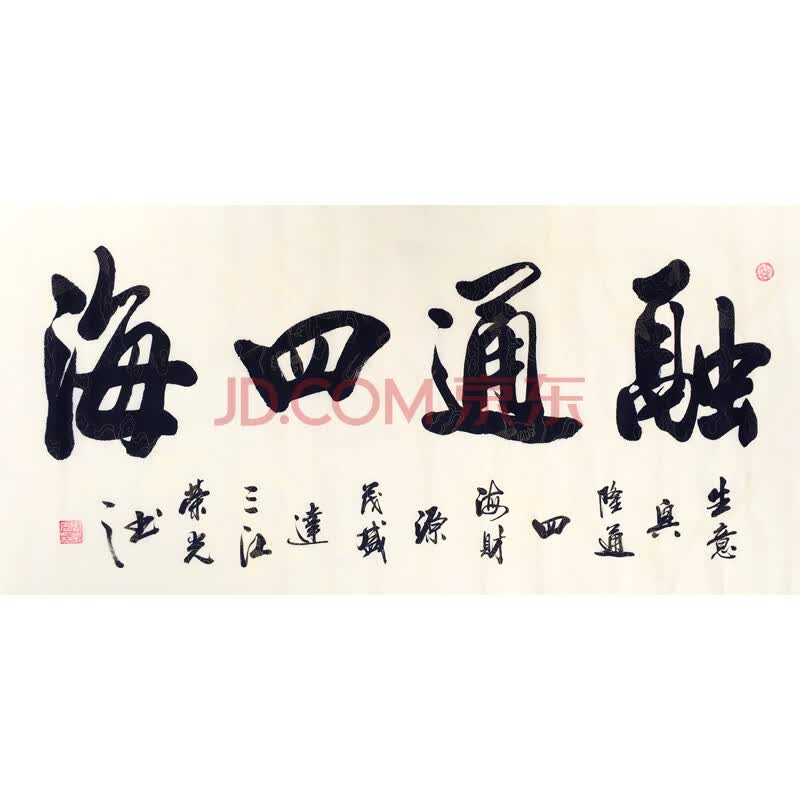 融通四海
生意興隆通四海財源茂盛達三江
榮光书
JD.COM 京东